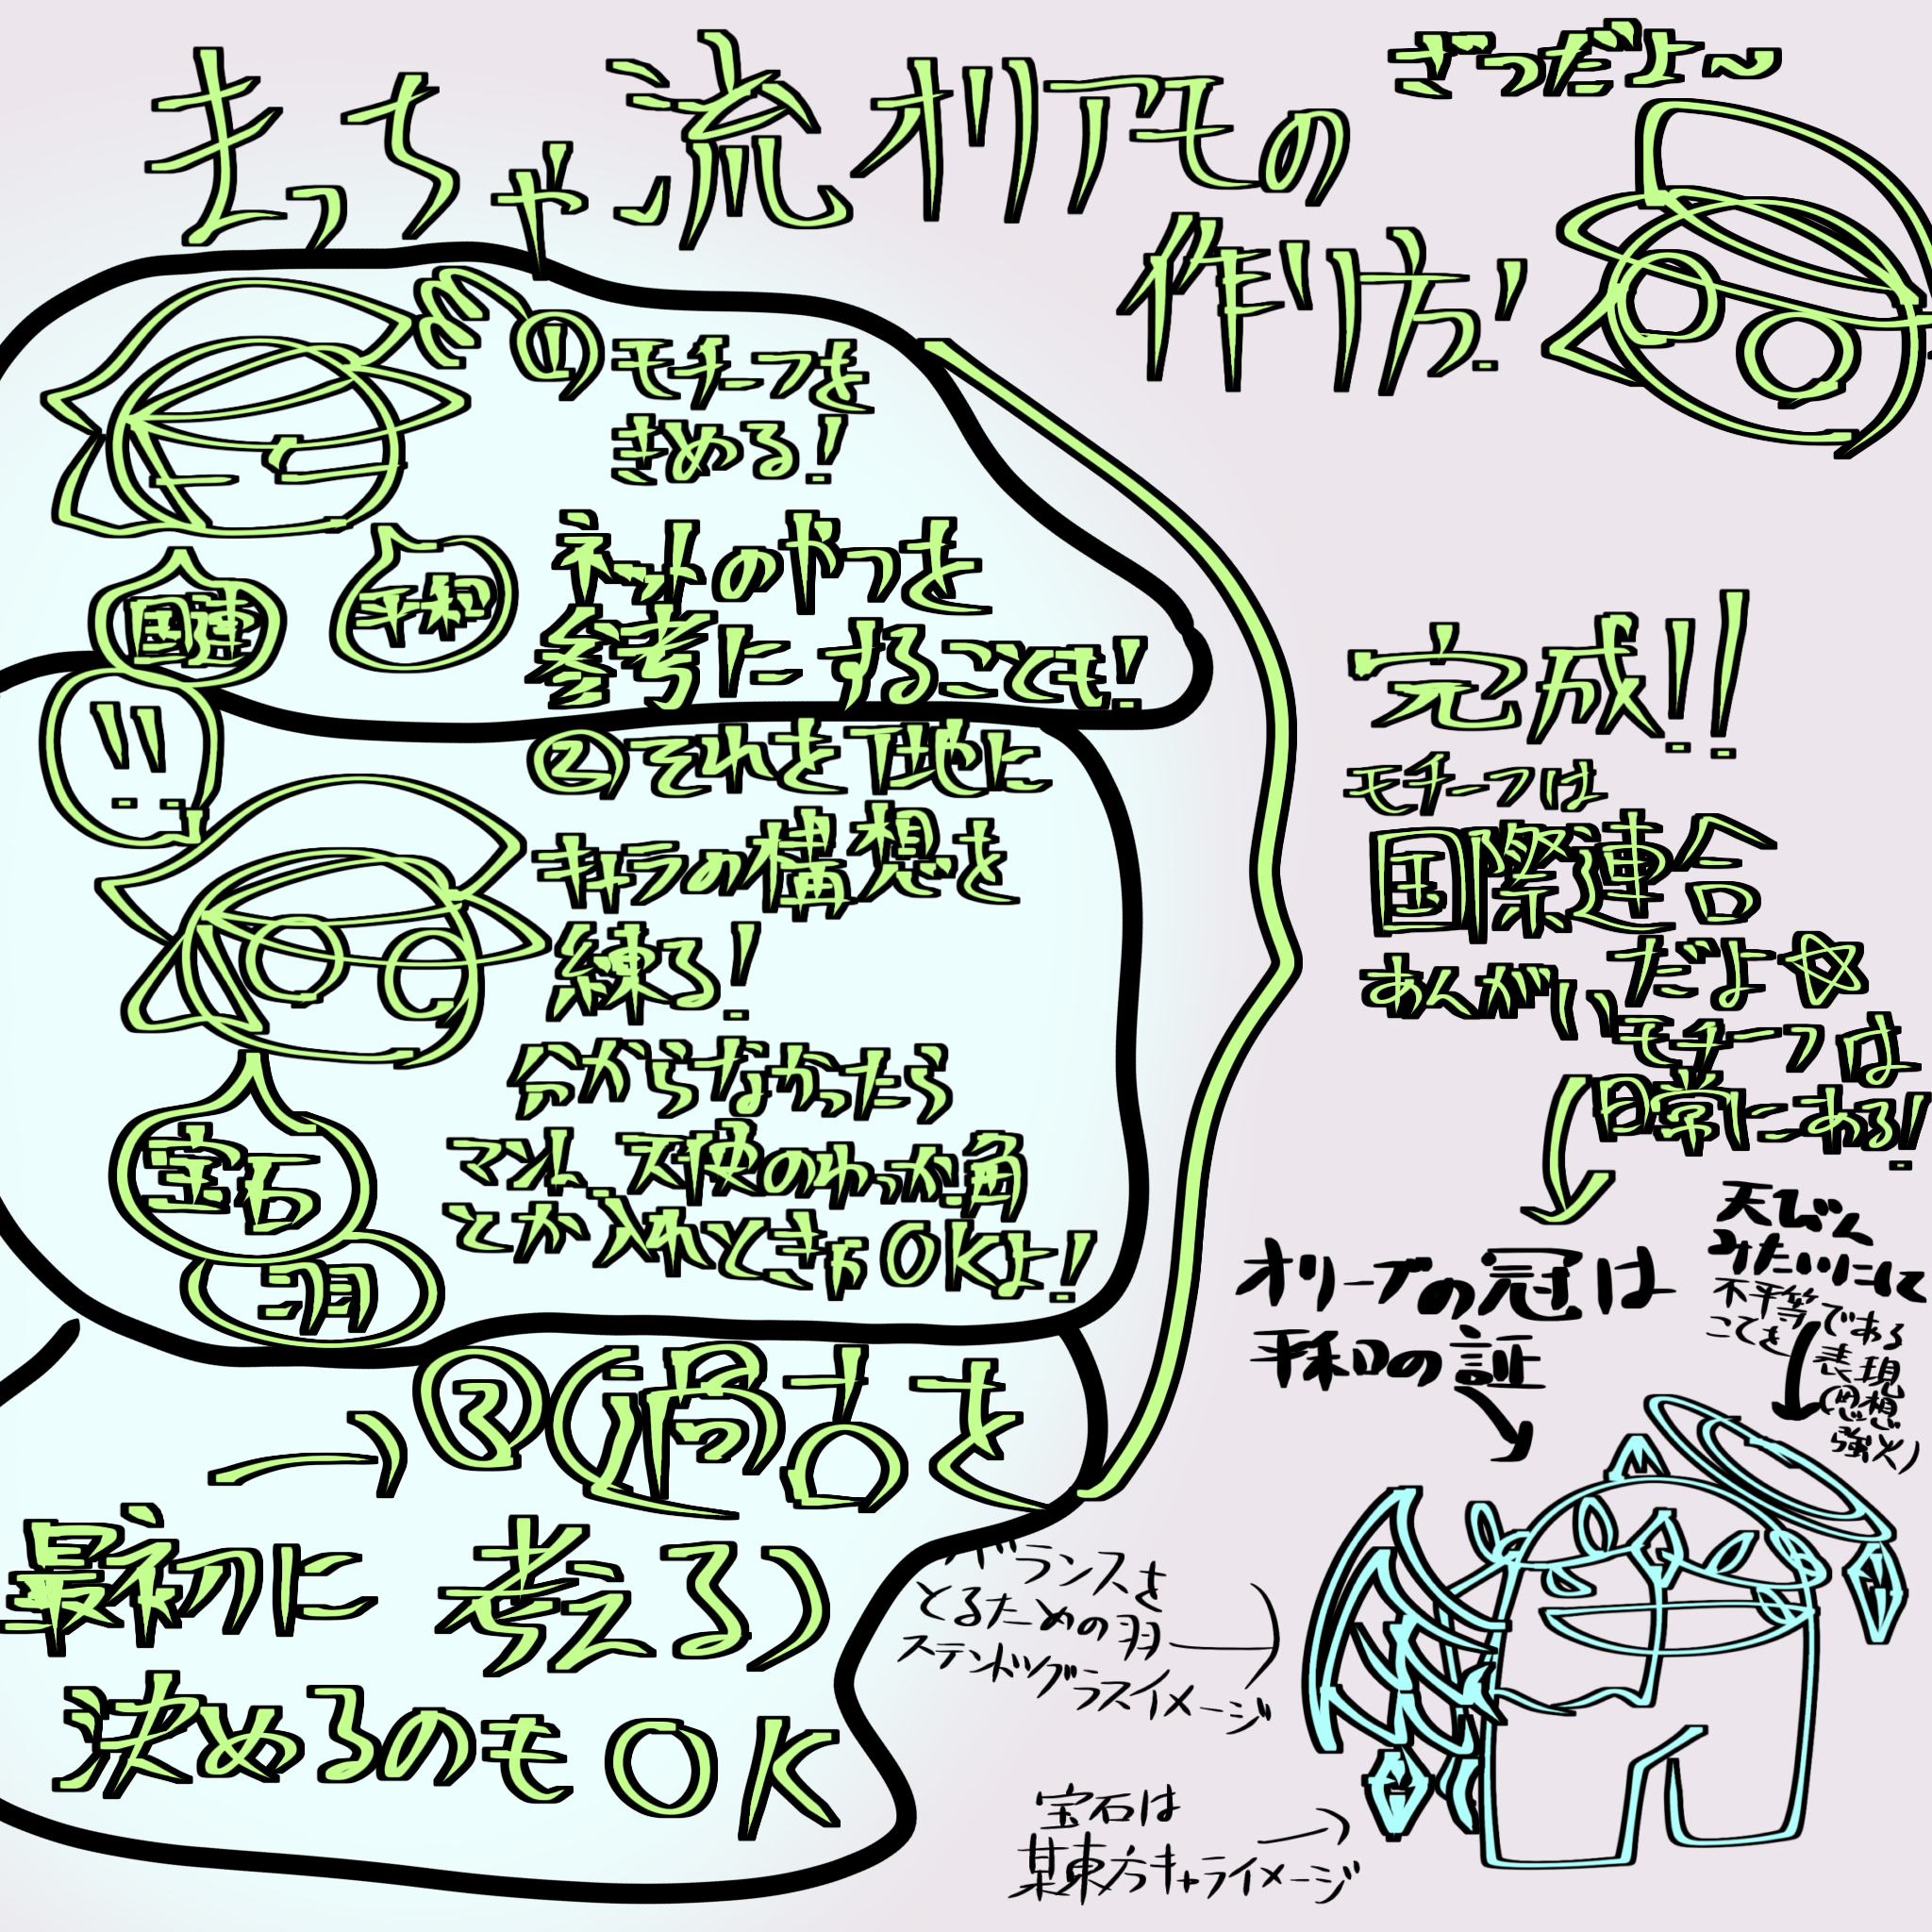 まっちゃ流オリアモの
作り方!
ざつだよ~
①モチーフを
きめる!
ネットのやつを
参考にすることも!
国連
平和
!!
②それを下地に
キャラの構想を
練る!
分からなかったら
マント、天使のわっか、角
とか入れときゃOKよ!
宝石
月
③(過去を
最初に考える)
決めるのもOK
完成!!
モチーフは
国際連合
だよ☆
あんがい
モチーフは
日常にある!
オリーブの冠は
平和の証
天びん
みたいにして
不平等である
ことを
表現
(思想
強火)
バランスを
とるための羽
ステンドグラスイメージ
宝石は
某東方キャライメージ